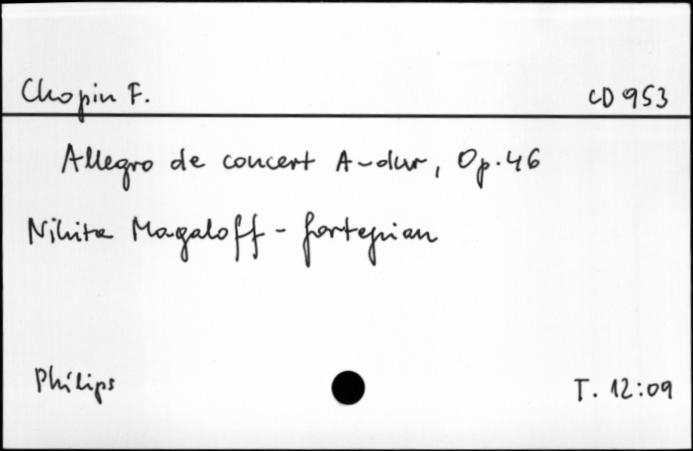 Chopin F. CD 953
Allegro de concert A-dur, Op. 46
Nikita Magaloff - fortepian
Philips T. 12:09